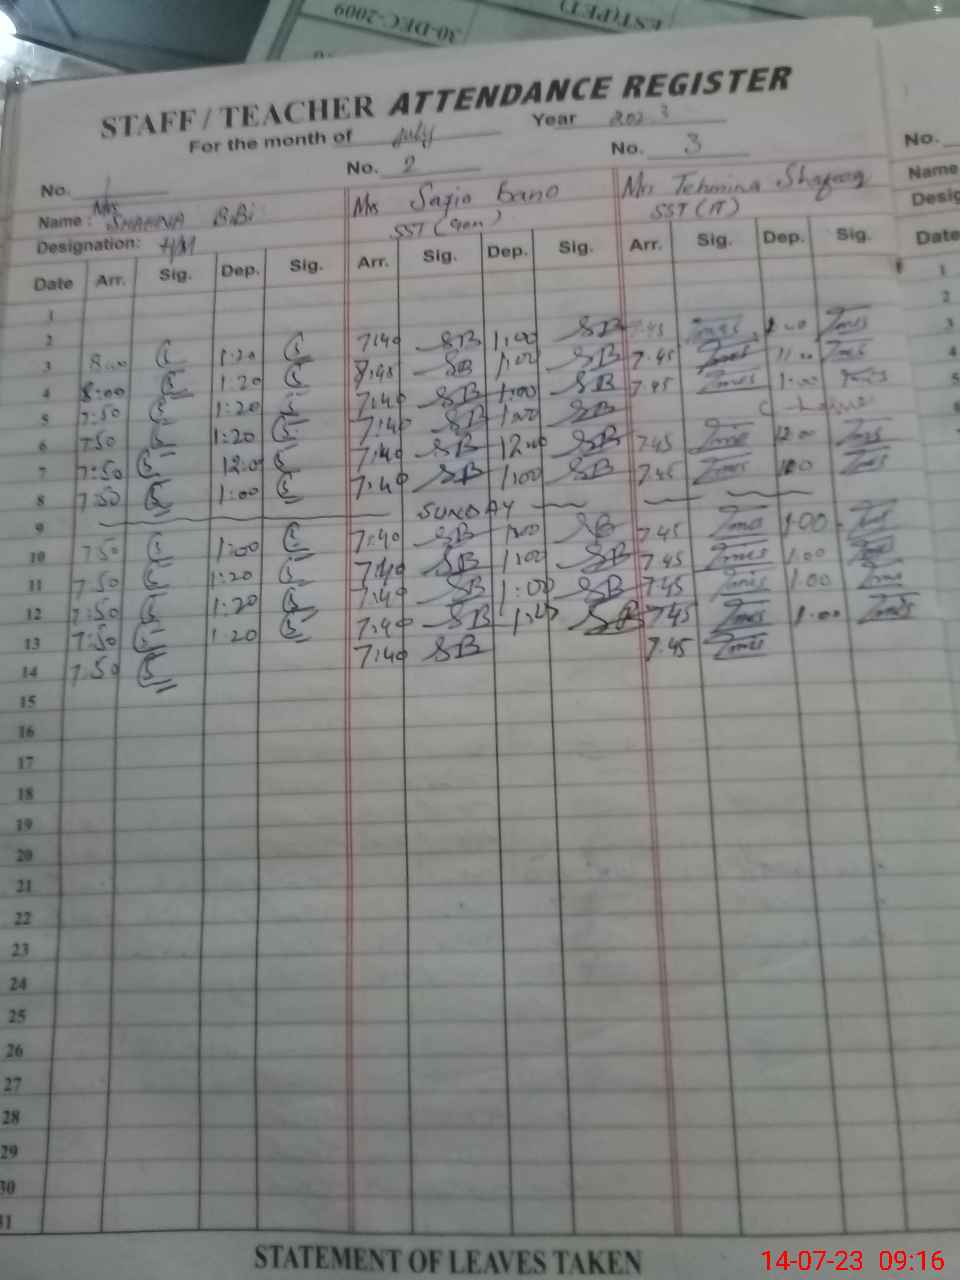 30-DEC-2009
EST(PET)
STAFF / TEACHER ATTENDANCE REGISTER
For the month of July Year 2023
No. 1 No. 2 No. 3 No.
Name : Mrs SHAHNA BiBi Mrs Sazia Bano Mrs Tehmina Shafooq Name
Designation: H/M SST (Gen) SST (IT) Desig
Date Arr. Sig. Dep. Sig. Arr. Sig. Dep. Sig. Arr. Sig. Dep. Sig. Date
1
2
3 8:00 1:20 7:40 SB 1:00 SB 7.45
4 8:00 1:20 7:45 SB 1:00 SB 7.45 1:00
5 7:50 1:20 7:40 SB 1:00 SB 7.45 1:00
6 7:50 1:20 7:40 SB 1:00 SB
7 7:50 12:0 7:40 SB 12:00 SB 7.45 12:00
8 7:50 1:00 7:40 SB 1:00 SB 7.45 1:00
9 SUNDAY
10 7:50 1:00 7:40 SB 1:00 SB 7.45 1:00
11 7:50 1:20 7:40 SB 1:00 SB 7.45 1.00
12 7:50 1:20 7:40 SB 1:00 SB 7.45 1.00
13 7:50 1:20 7:40 SB SB 7.45 1:00
14 7:50 7:40 SB 7.45
15
16
17
18
19
20
21
22
23
24
25
26
27
28
29
30
31
STATEMENT OF LEAVES TAKEN
14-07-23 09:16